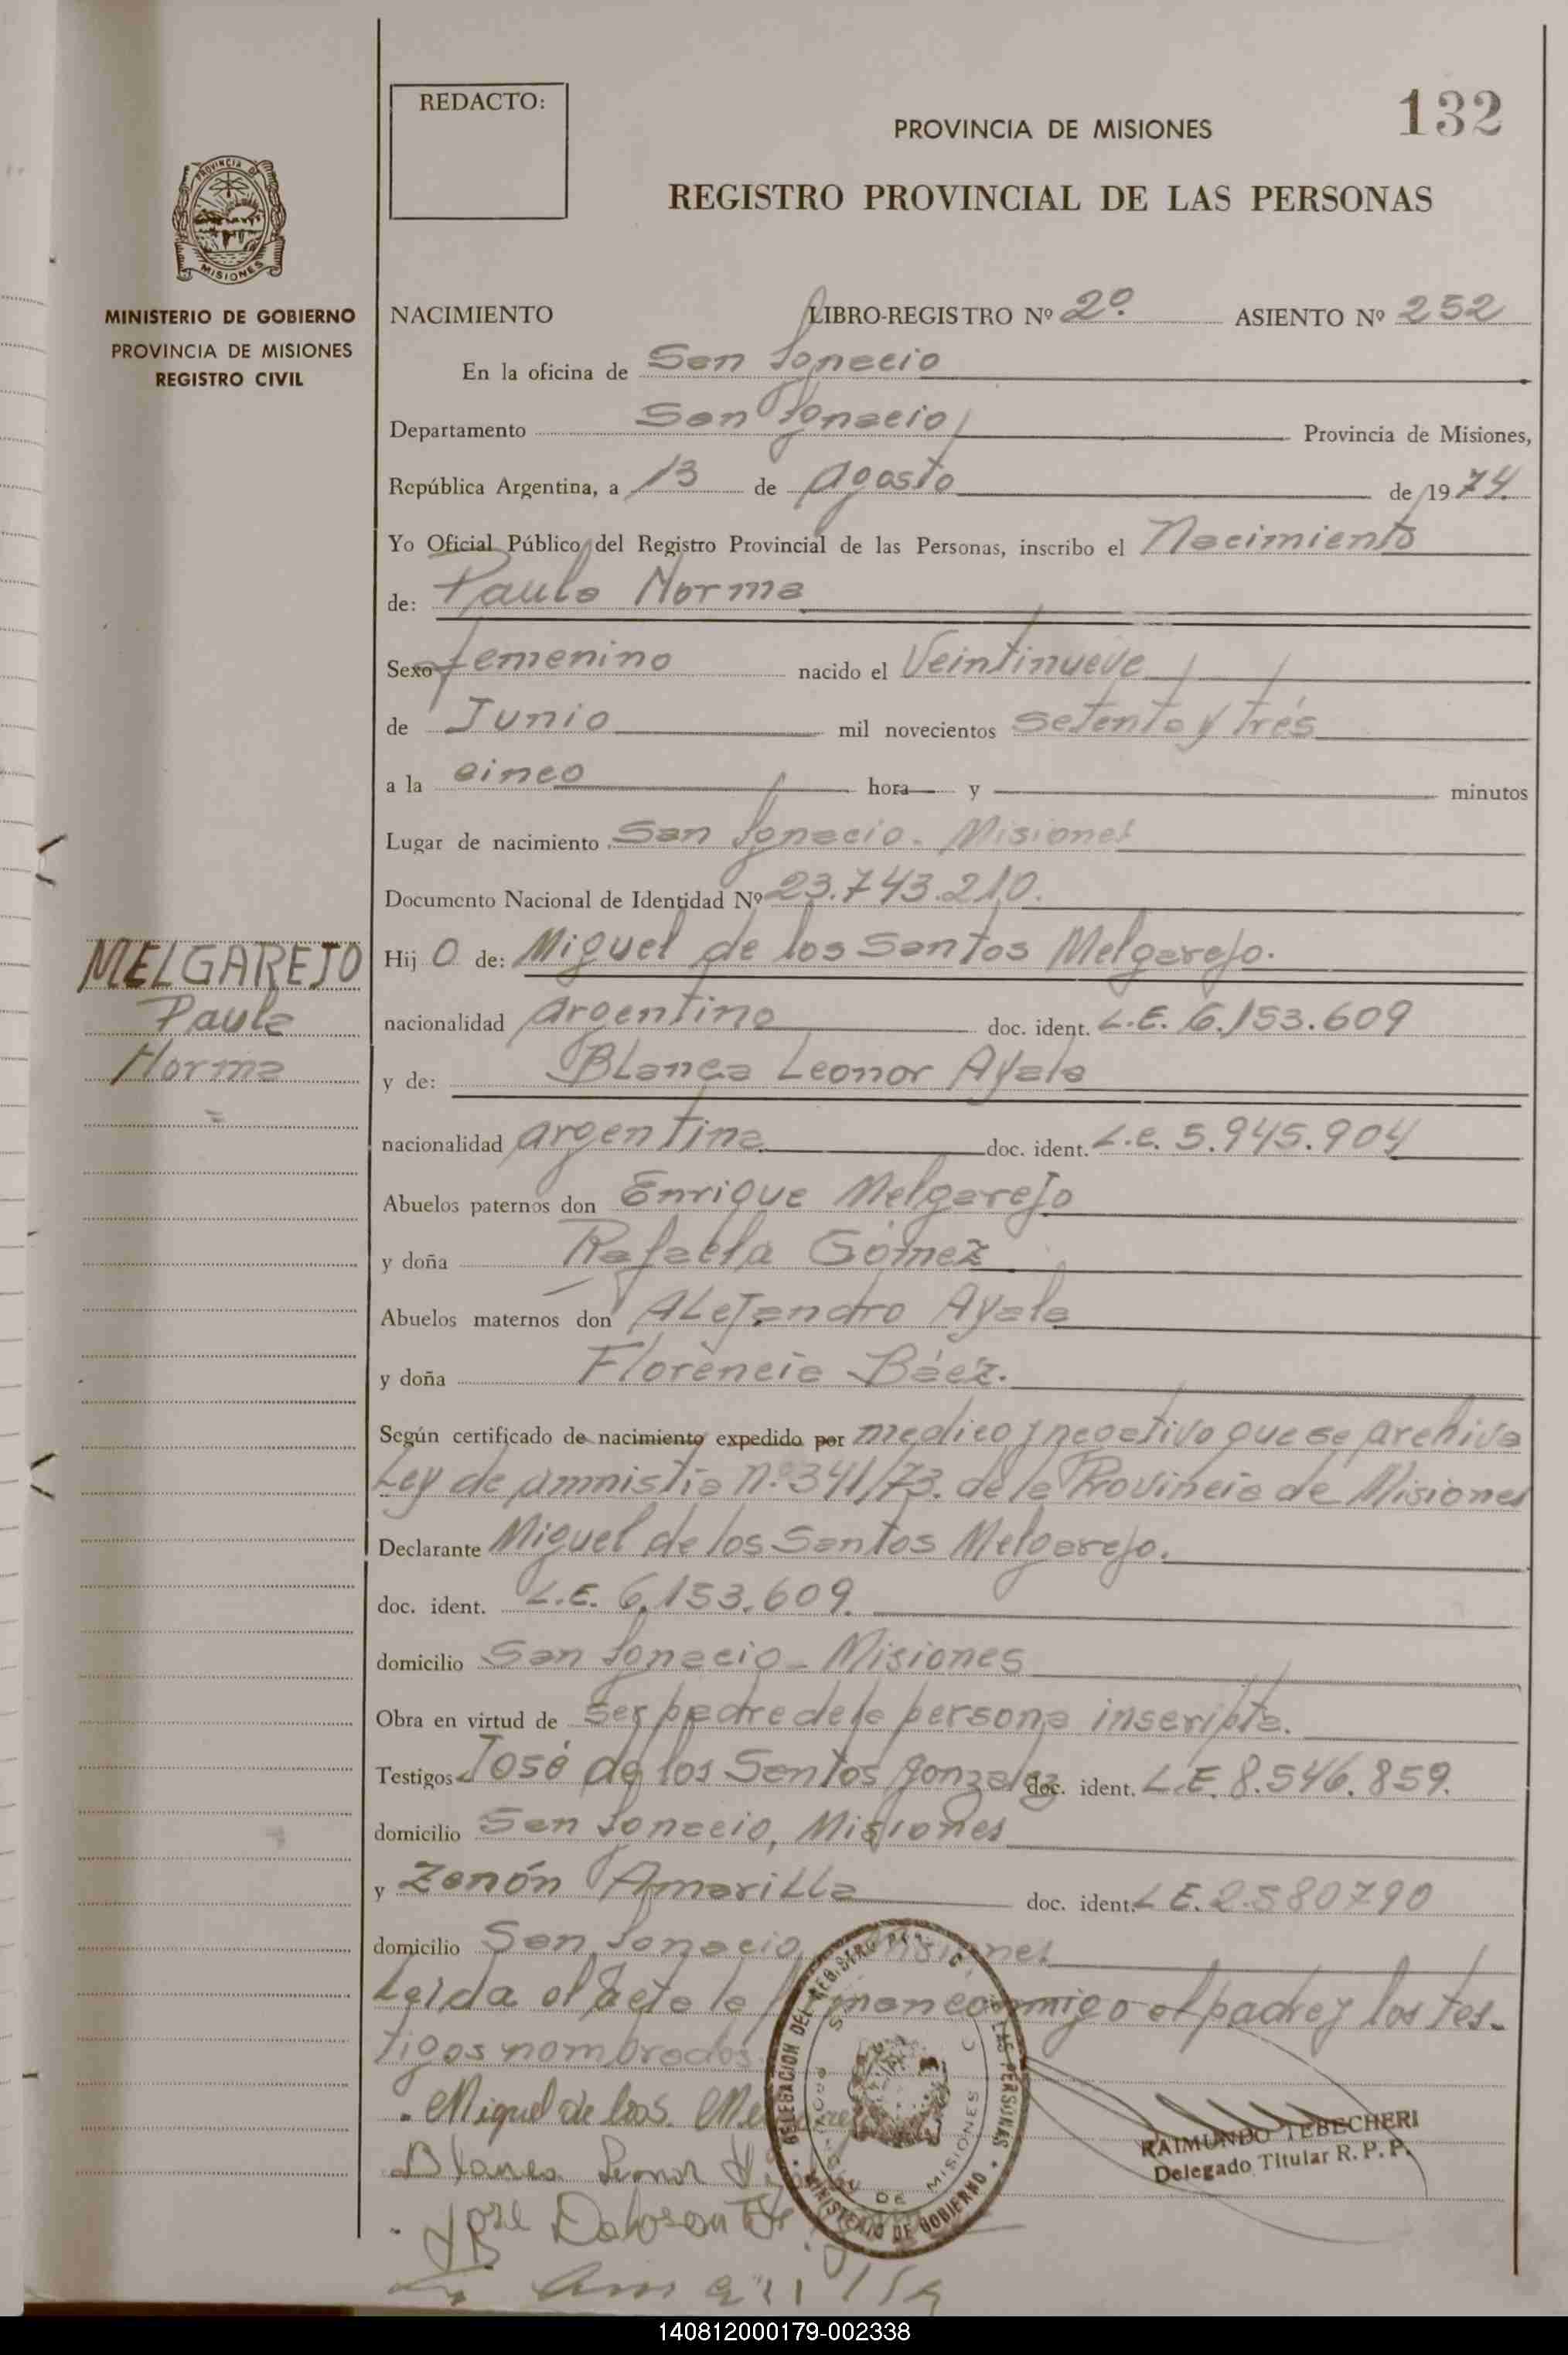 REDACTO:
132
PROVINCIA DE MISIONES
REGISTRO PROVINCIAL DE LAS PERSONAS
PROVINCIA DE
MISIONES
MINISTERIO DE GOBIERNO
PROVINCIA DE MISIONES
REGISTRO CIVIL
NACIMIENTO LIBRO-REGISTRO Nº 2º. ASIENTO Nº 252
En la oficina de San Ignacio
Departamento San Ignacio Provincia de Misiones,
República Argentina, a 13 de agosto de 1974.
Yo Oficial Público del Registro Provincial de las Personas, inscribo el Nacimiento
de: Paula Norma
Sexo femenino nacido el Veintinueve
de Junio mil novecientos setenta y trés
a la cinco hora y minutos
Lugar de nacimiento San Ignacio. Misiones
Documento Nacional de Identidad Nº 23.743.210.
MELGAREJO
Paula
Norma
Hij o de: Miguel de los Santos Melgarejo.
nacionalidad argentino doc. ident. L.E. 6.153.609
y de: Blanca Leonor Ayala
nacionalidad argentina doc. ident. L.e. 5.945.904
Abuelos paternos don Enrique Melgarejo
y doña Rafaela Gómez
Abuelos maternos don Alejandro Ayala
y doña Florencia Báez.
Según certificado de nacimiento expedido por medico y negativo que se archiva
Ley de amnistia nº 341/73. de la Provincia de Misiones
Declarante Miguel de los Santos Melgarejo.
doc. ident. L.E. 6.153.609.
domicilio San Ignacio - Misiones
Obra en virtud de ser padre de la persona inscripta.
Testigos José de los Santos Gonzalez doc. ident. L.E. 8.546.859.
domicilio San Ignacio, Misiones
y Zenón Amarilla doc. ident. L.E. 2.580790
domicilio San Ignacio Misiones
Leida el acta la firman conmigo el padre y los tes-
tigos nombrados
Miguel de los
Blanca
DELEGACION DEL REGISTRO LAS PERSONAS
MINISTERIO DE GOBIERNO
DE MISIONES
RAIMUNDO TEBECHERI
Delegado Titular R. P. P.
Jose
Amarilla
140812000179-002338